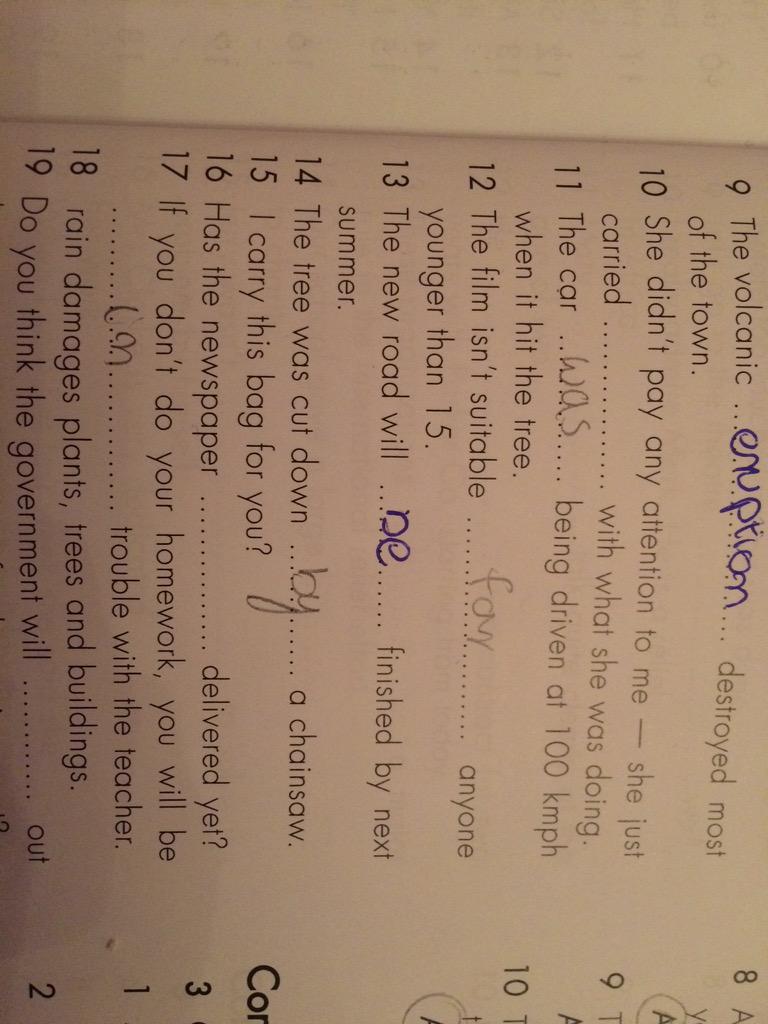 9 The volcanic ...eruption... destroyed most
of the town.
10 She didn't pay any attention to me — she just
carried ............... with what she was doing.
11 The car ..was..... being driven at 100 kmph
when it hit the tree.
12 The film isn't suitable .......for.......... anyone
younger than 15.
13 The new road will ...be...... finished by next
summer.
14 The tree was cut down ...by...... a chainsaw.
15 I carry this bag for you?
16 Has the newspaper ............... delivered yet?
17 If you don't do your homework, you will be
.........in............ trouble with the teacher.
18 rain damages plants, trees and buildings.
19 Do you think the government will ............ out
8 A
y
A
9 T
A
10 T
t
A
Cor
3
1
2